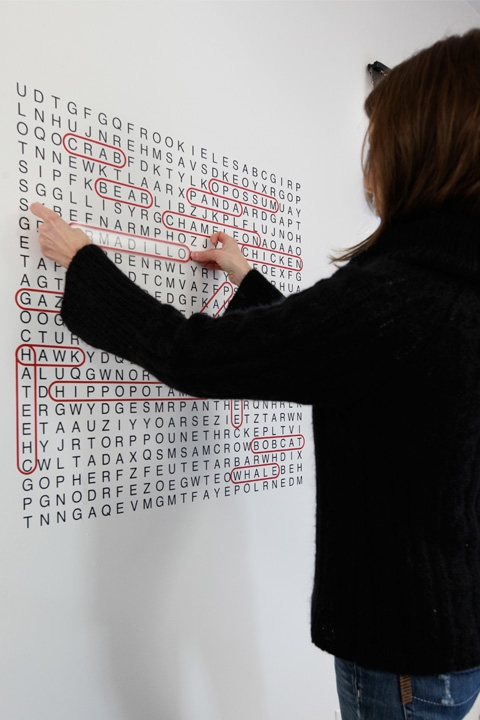 U D T G F G Q F R O O K I E L E S A B C G I R P
L N H U J N R E H M S A V S D K E O Y X R G O P
O Q O C R A B F D K T Y L K O P O S S U M U A Y
T N N E W K T L A A R X P A N D A A R D G A P T
S I P F K B E A R G I B Z J K P L F L U J N O H
S G G L L I S Y R G C H A M E L E O N A O A A O
S R E F N A R M P H O Z J C H I C K E N
G D R M A D I L L O E X F G
E B E N R W L Y R L H U A
T A F D T C M V A Z F P
A G T E D G F K A
G A Z
O O G
C T U R
H A W K Y D Q
A L U Q G W N O R
T D H I P P O P O T A M
E R G W Y D G E S M R P A N T H E R Q N H R L R
E T A A U Z I Y Y O A R S E Z I E T Z T A R W N
H Y J R T O R P P O U N E T H R C K E P L T V I
C W L T A D A X Q S M S A M C R O W B O B C A T
G O P H E R F Z F E U T E T A R B A R W H D I X
P G N O D R F E Z O E G W T E O W H A L E B E H
T N N G A Q E V M G M T F A Y E P O L R N E D M